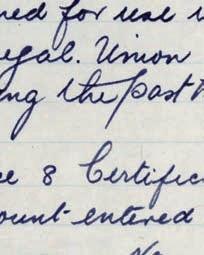 ed for use i
egal. Union
ing the past
e 8 Certific
ount entered